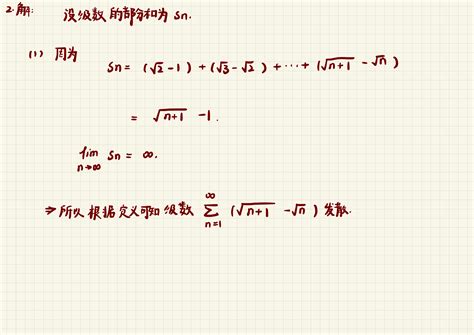 2.解: 设级数的部分和为 Sn.
(1) 因为
Sn = (√2 - 1) + (√3 - √2) + ··· + (√n+1 - √n)
= √n+1 - 1.
lim n→∞ Sn = ∞.
⇒ 所以根据定义可知级数 ∞ Σ n=1 (√n+1 - √n) 发散.